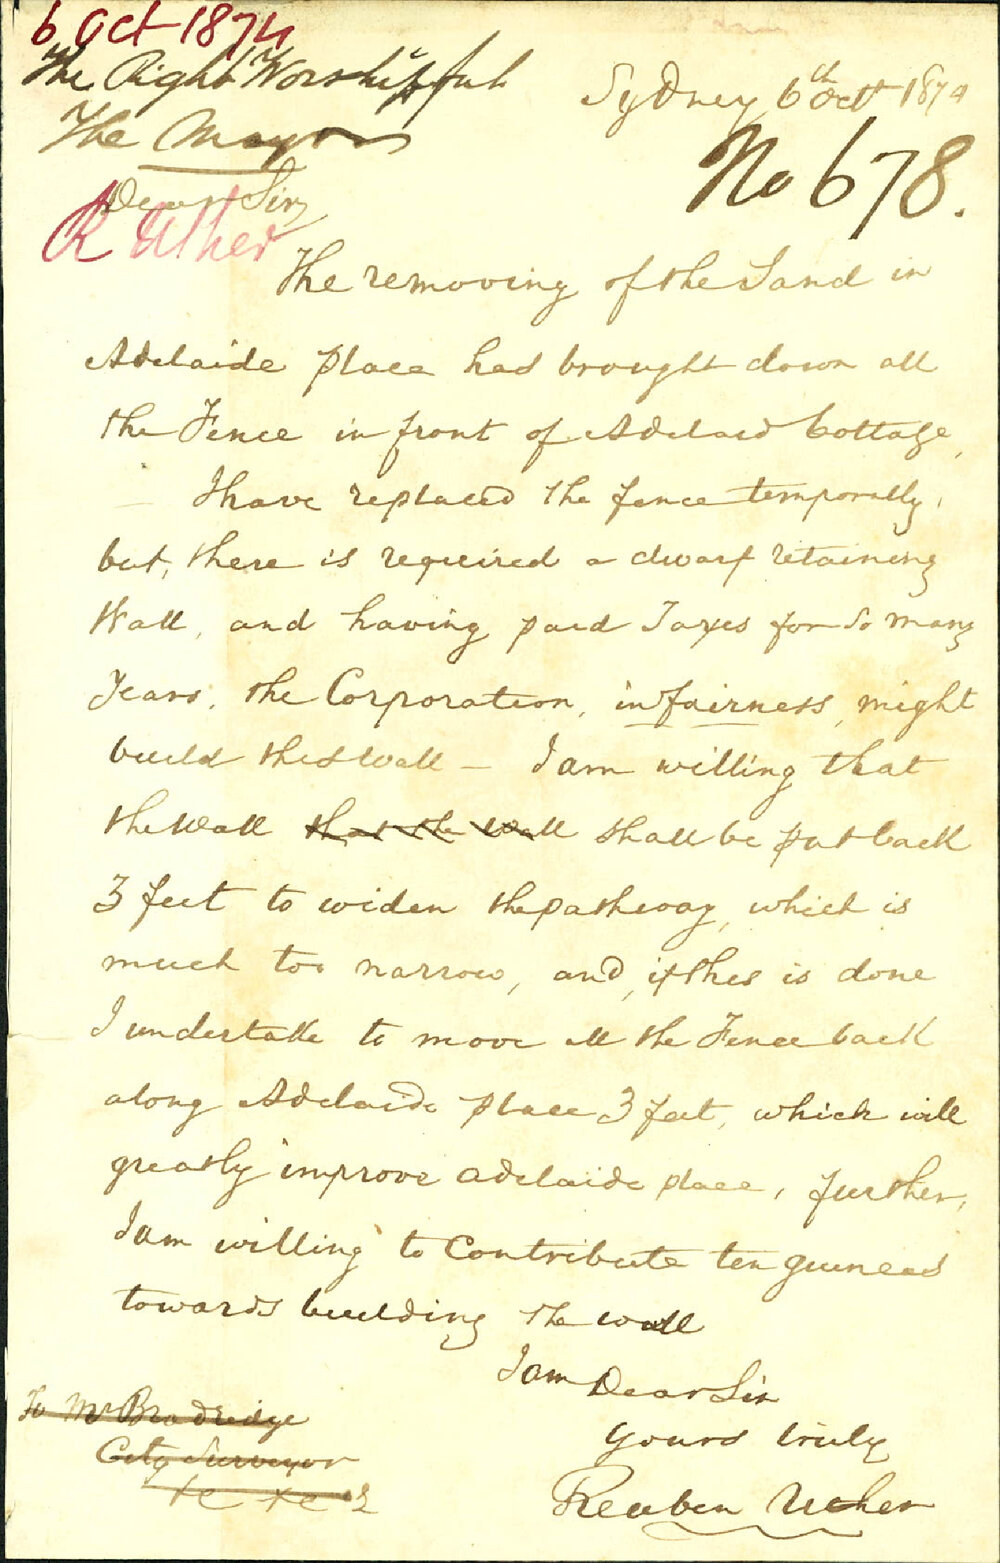 6 Oct 1874
The Right Worshipful
The Mayor
Sydney 6th Oct 1874
No 678.
Dear Sir,
R Uther
The removing of the Sand in
Adelaide place has brought down all
the Fence in front of Adelaid Cottage,
I have replaced the fence temporally,
but, there is required a dwarf retaining
Wall, and having paid Taxes for so many
Years, the Corporation, in fairness, might
build this wall – I am willing that
the Wall that the Wall shall be put back
3 feet to widen the pathway, which is
much too narrow, and, if this is done
I undertake to move all the Fence back
along Adelaide place 3 feet, which will
greatly improve Adelaide place, further,
I am willing to Contribute ten guineas
towards building the wall
I am Dear Sir
Yours truly
Reuben Uther
To Mr Bradridge
City Surveyor
&c &c &c